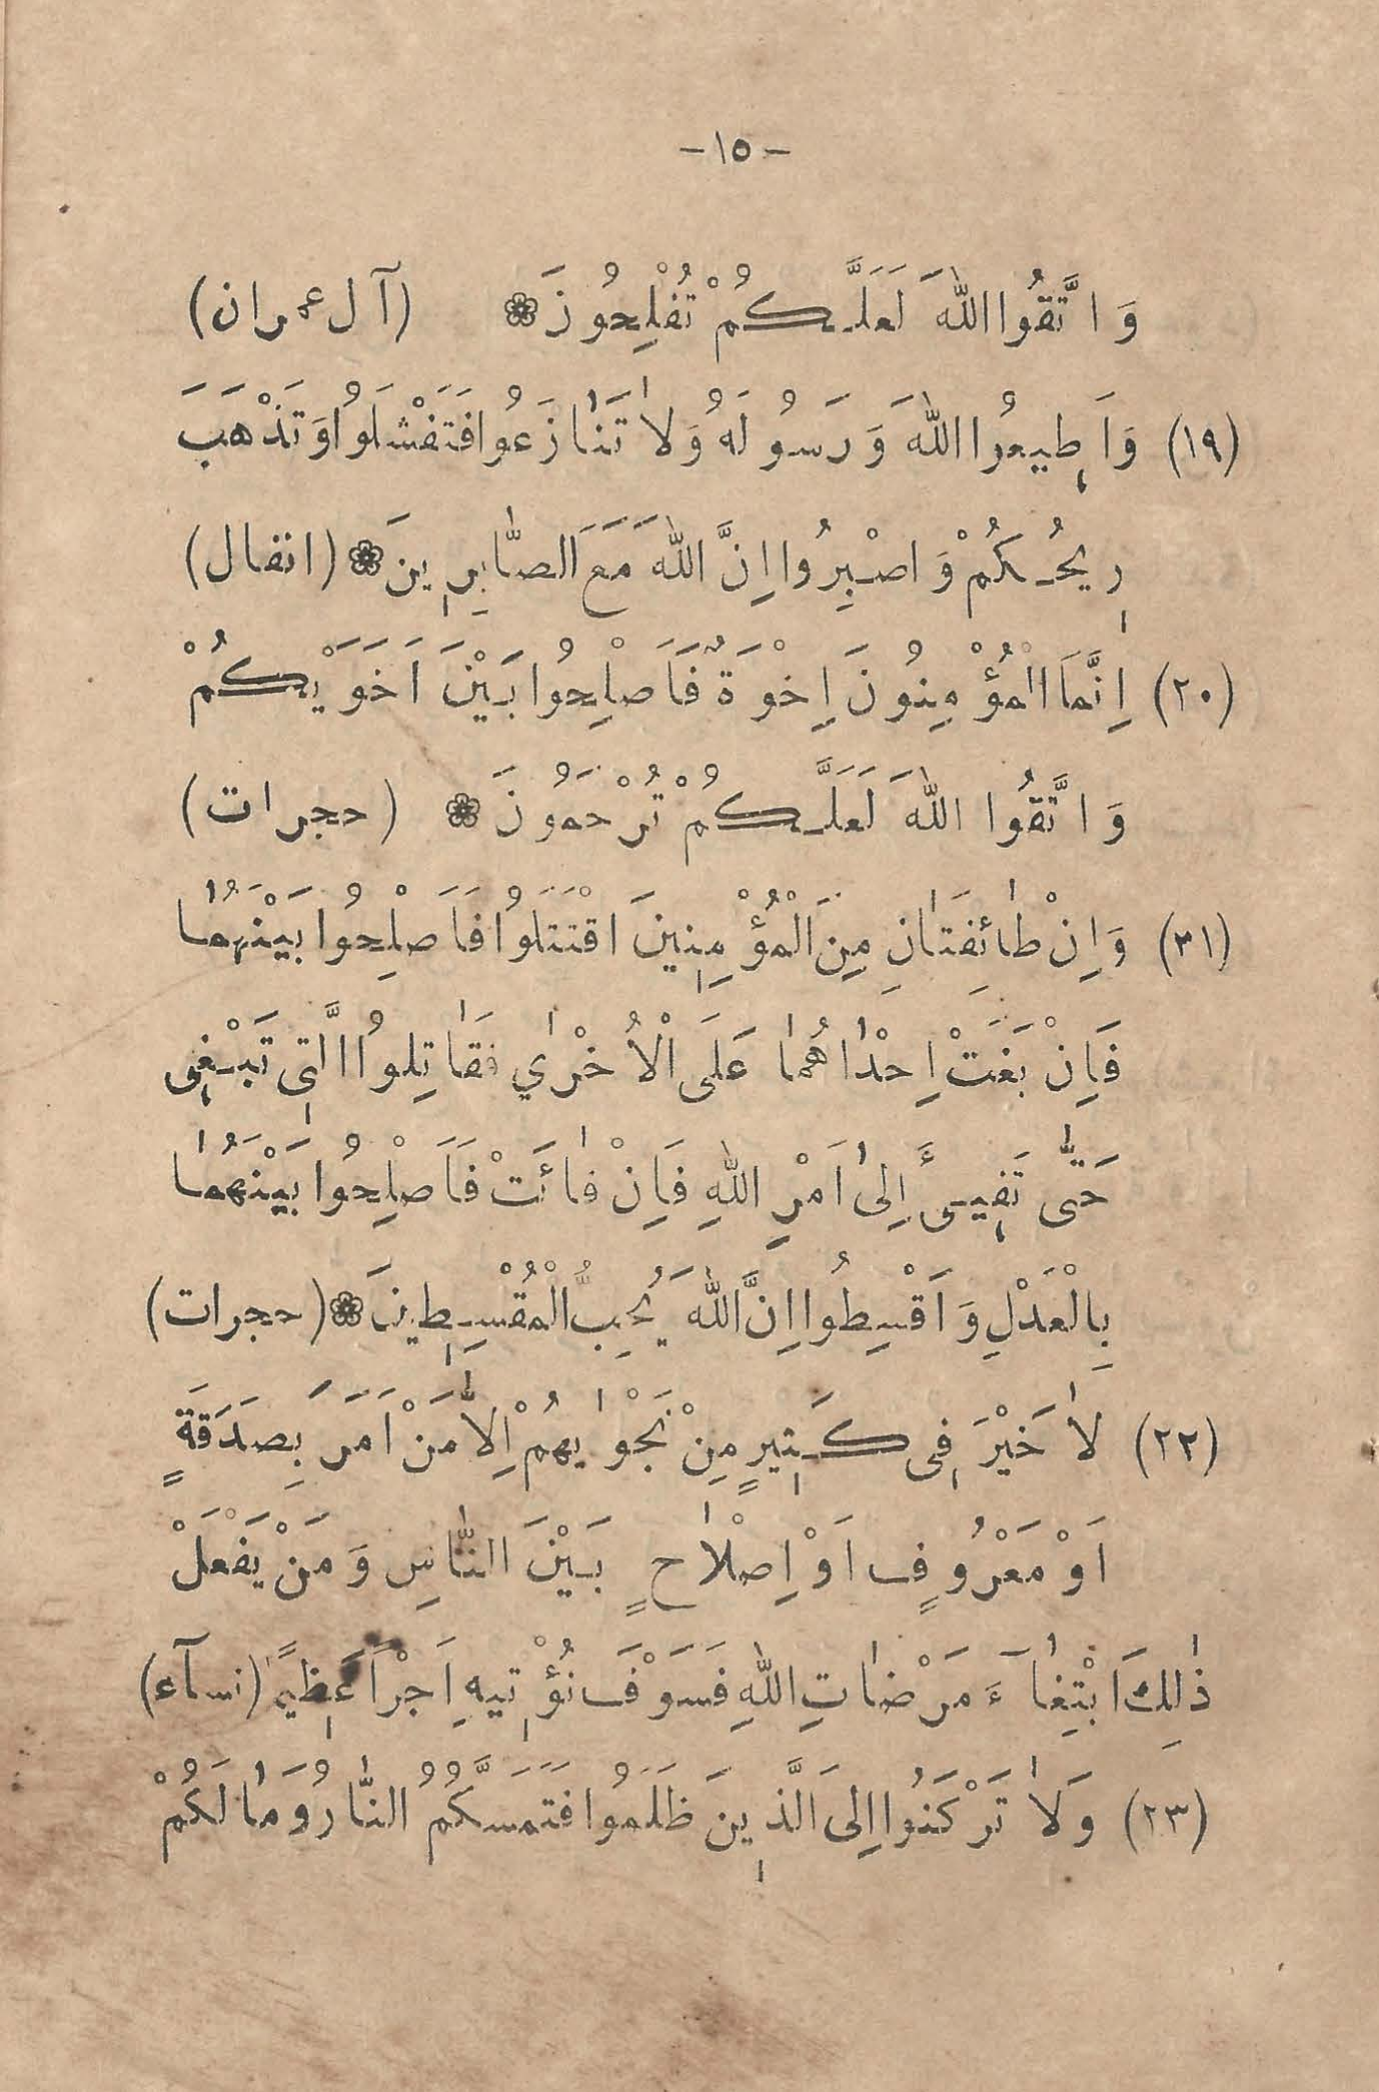 -١٥-
وَاتَّقُوا اللهَ لَعَلَّكُمْ تُفْلِحُونَ ❁ (آل عمران)
(١٩) وَاَطِيعُوا اللهَ وَرَسُولَهُ وَلاٰ تَنٰازَعُوا فَتَفْشَلُوا وَتَذْهَبَ
رِيحُكُمْ وَاصْبِرُوا اِنَّ اللهَ مَعَ الصّٰابِرِينَ ❁ (انفال)
(٢٠) اِنَّمَا الْمُؤْمِنُونَ اِخْوَةٌ فَاَصْلِحُوا بَيْنَ اَخَوَيْكُمْ
وَاتَّقُوا اللهَ لَعَلَّكُمْ تُرْحَمُونَ ❁ (حجرات)
(٣١) وَاِنْ طٰائِفَتٰانِ مِنَ الْمُؤْمِنِينَ اقْتَتَلُوا فَاَصْلِحُوا بَيْنَهُمٰا
فَاِنْ بَغَتْ اِحْدٰاهُمٰا عَلَى الْاُخْرٰي فَقٰاتِلُوا الَّتِى تَبْغِى
حَتّٰى تَفِيىءَ اِلىٰ اَمْرِ اللهِ فَاِنْ فٰائَتْ فَاَصْلِحُوا بَيْنَهُمٰا
بِالْعَدْلِ وَاَقْسِطُوا اِنَّ اللهَ يُحِبُّ الْمُقْسِطِينَ ❁ (حجرات)
(٢٢) لاٰ خَيْرَ فِى كَثِيرٍ مِنْ نَجْوٰيهُمْ اِلاّٰ مَنْ اَمَرَ بِصَدَقَةٍ
اَوْ مَعْرُوفٍ اَوْ اِصْلاٰحٍ بَيْنَ النّٰاسِ وَمَنْ يَفْعَلْ
ذٰلِكَ ابْتِغٰآءَ مَرْضٰاتِ اللهِ فَسَوْفَ نُؤْتِيهِ اَجْراً عَظِيماً (نسآء)
(٢٣) وَلاٰ تَرْكَنُوا اِلَى الَّذِينَ ظَلَمُوا فَتَمَسَّكُمُ النّٰارُ وَمٰا لَكُمْ